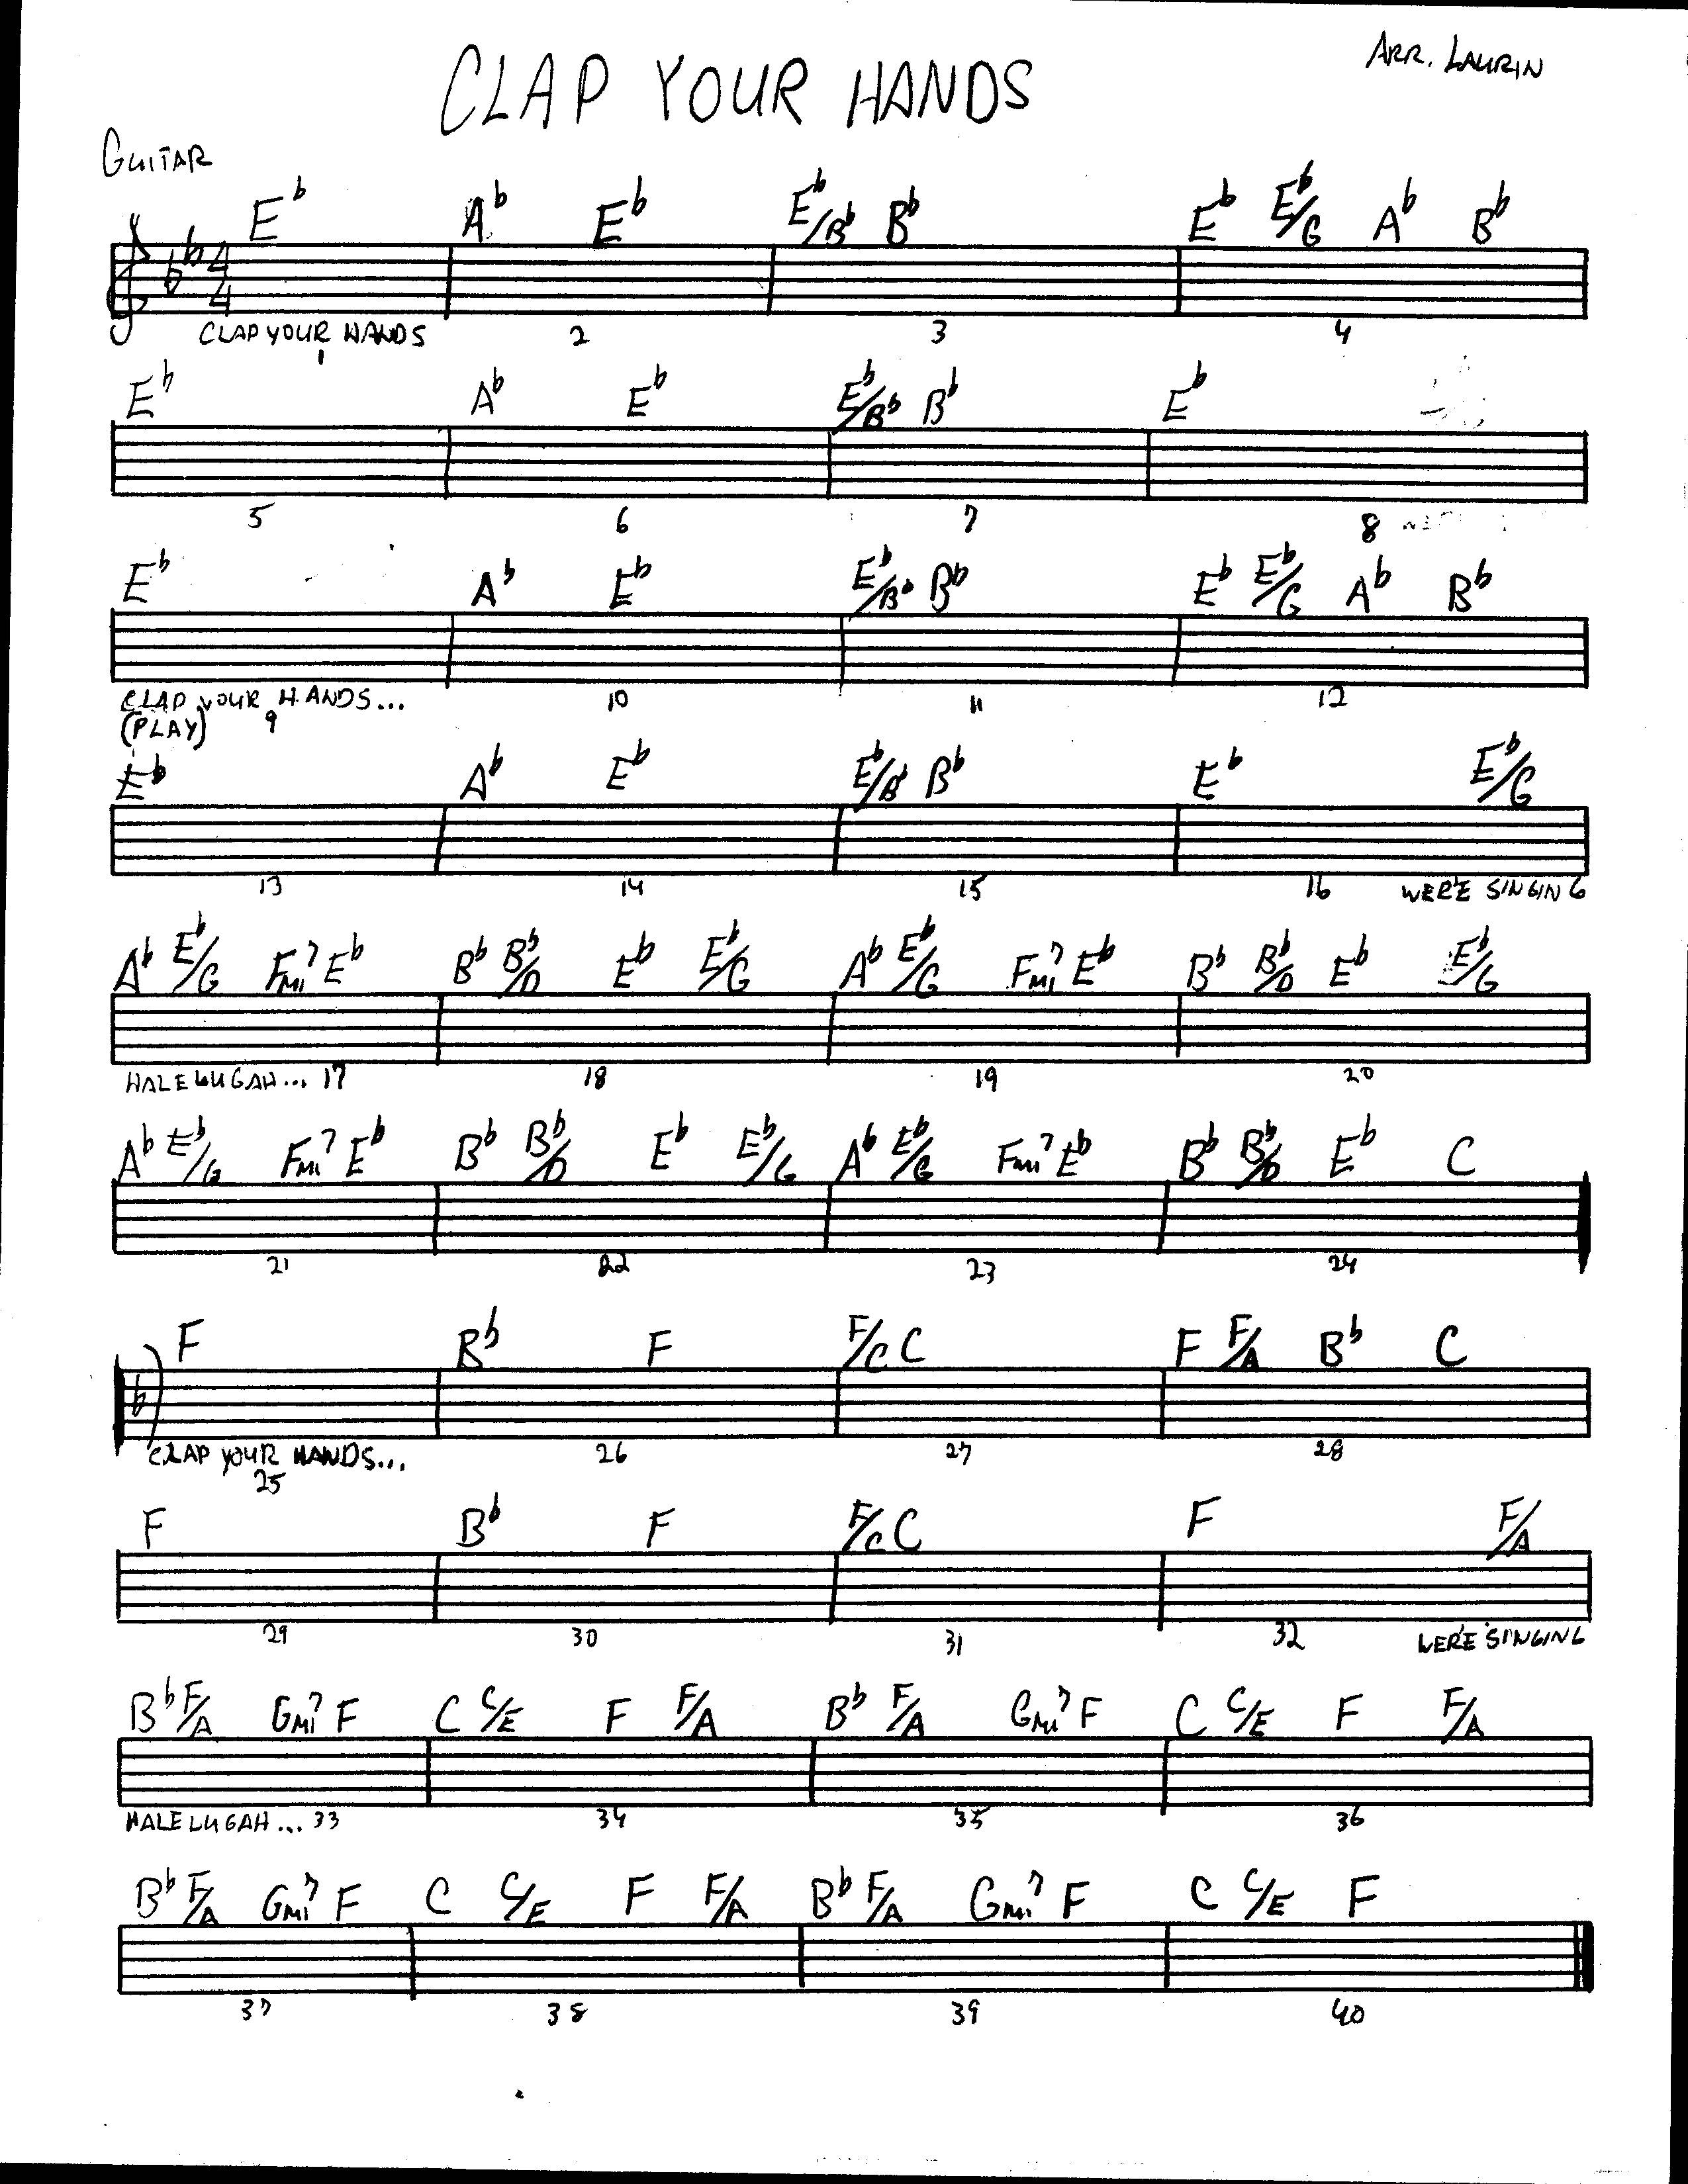 CLAP YOUR HANDS
ARR. LAURIN
GUITAR
E♭ A♭ E♭ E♭/B♭ B♭ E♭ E♭/G A♭ B♭
4
4
CLAP YOUR HANDS
1 2 3 4
E♭ A♭ E♭ E♭/B♭ B♭ E♭
5 6 7 8
E♭ A♭ E♭ E♭/B♭ B♭ E♭ E♭/G A♭ B♭
CLAP YOUR HANDS...
(PLAY) 9 10 11 12
E♭ A♭ E♭ E♭/B♭ B♭ E♭ E♭/G
13 14 15 16 WER'E SINGING
A♭ E♭/G FMI7 E♭ B♭ B♭/D E♭ E♭/G A♭ E♭/G FMI7 E♭ B♭ B♭/D E♭ E♭/G
HALELUGAH... 17 18 19 20
A♭ E♭/G FMI7 E♭ B♭ B♭/D E♭ E♭/G A♭ E♭/G FMI7 E♭ B♭ B♭/D E♭ C
21 22 23 24
F B♭ F F/C C F F/A B♭ C
CLAP YOUR HANDS...
25 26 27 28
F B♭ F F/C C F F/A
29 30 31 32 WER'E SINGING
B♭ F/A GMI7 F C C/E F F/A B♭ F/A GMI7 F C C/E F F/A
HALELUGAH... 33 34 35 36
B♭ F/A GMI7 F C C/E F F/A B♭ F/A GMI7 F C C/E F
37 38 39 40